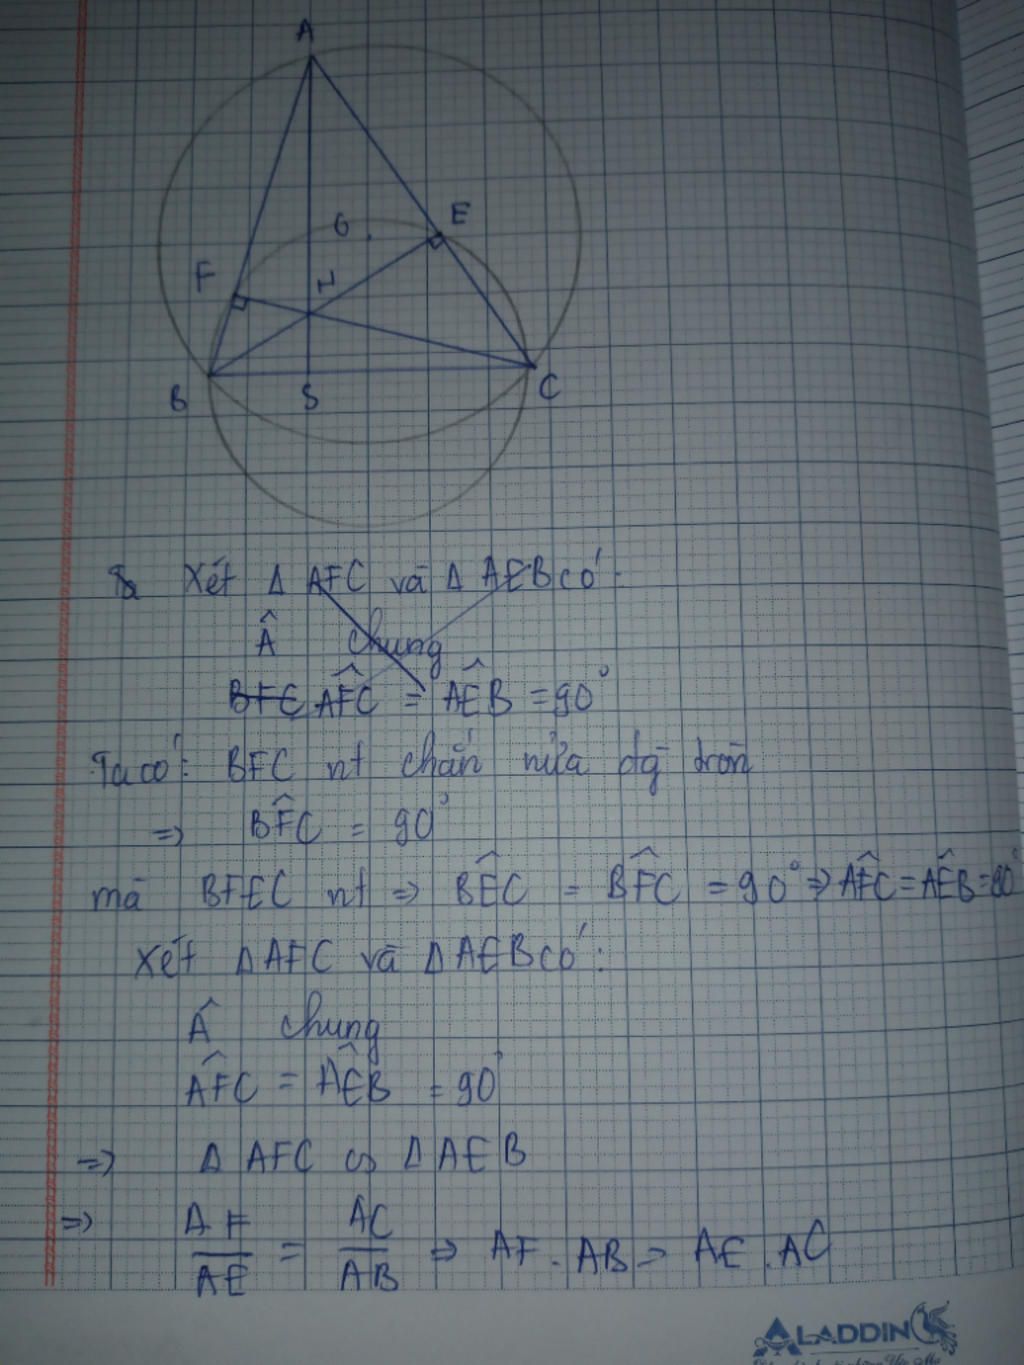 A
E
O
F
H
B
S
C
Xét Δ AFC và Δ AEB có:
Â chung
BFC AFC = AEB = 90°
Ta có: BFC nt chắn nửa đg tròn
=> BFC = 90°
mà BFEC nt => BEC = BFC = 90° => AFC = AEB = 90°
Xét Δ AFC và Δ AEB có:
Â chung
AFC = AEB = 90°
=> Δ AFC ∽ Δ AEB
=> AF/AE = AC/AB => AF . AB = AE . AC
ALADDIN